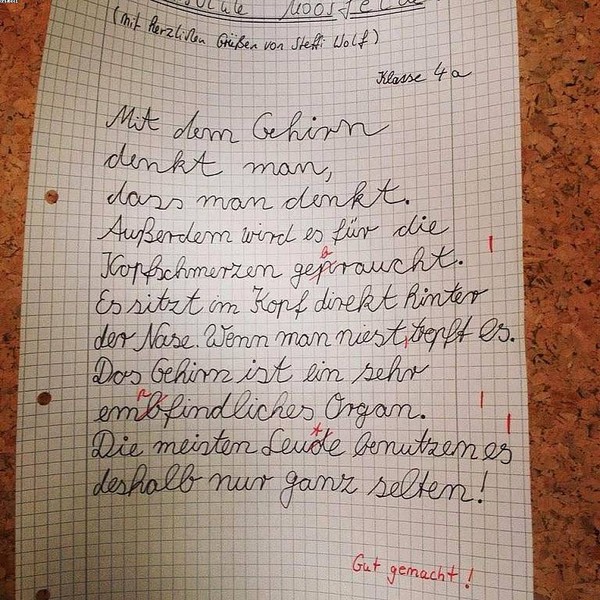 Moosfeld
(mit herzlichen Grüßen von Steffi Wolf)
Klasse 4a
Mit dem Gehirn
denkt man,
dass man denkt.
Außerdem wird es für die
b
Kopfschmerzen gepraucht.
Es sitzt im Kopf direkt hinter
der Nase. Wenn man niest, tropft es.
Das Gehirn ist ein sehr
p
embfindliches Organ.
t
Die meisten Leude benutzen es
deshalb nur ganz selten!
Gut gemacht!